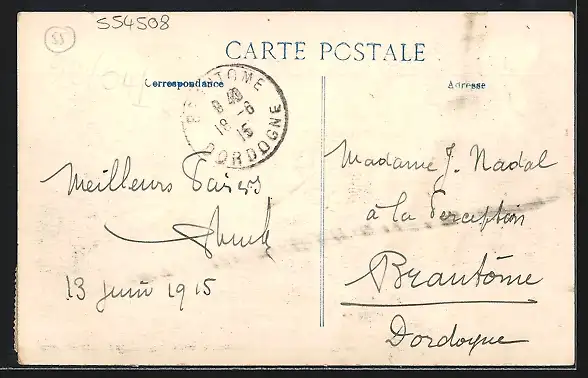 554508
55
CARTE POSTALE
Correspondance
Adresse
BRANTOME
18 -6
15
DORDOGNE
Meilleurs
13 juin 1915
Madame J. Nadal
à la Perception
Brantôme
Dordogne